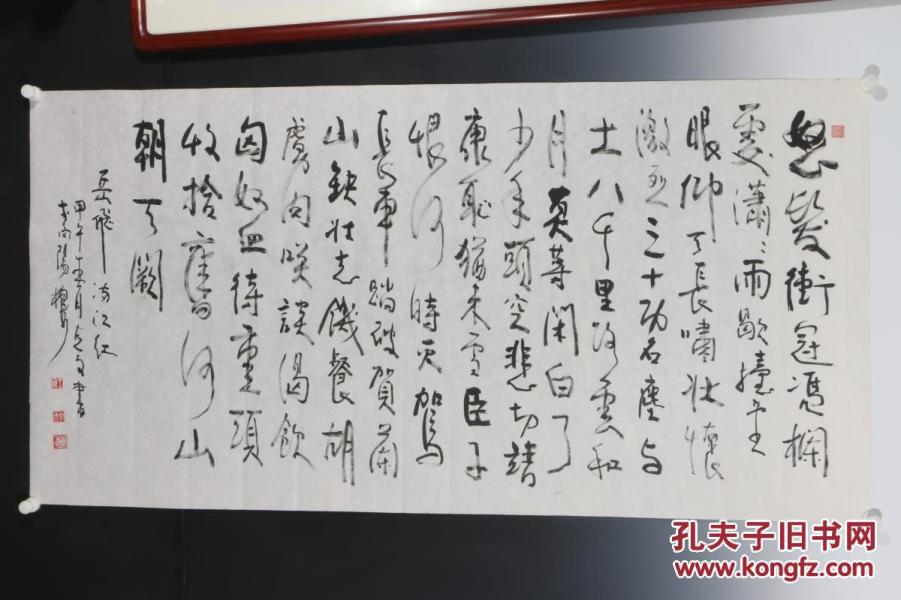 怒髮衝冠憑欄
處瀟瀟雨歇擡望
眼仰天長嘯壯懷
激烈三十功名塵与
土八千里路雲和
月莫等闲白了
少年頭空悲切靖
康耻猶未雪臣子
恨何時灭駕
長車踏破賀蘭
山缺壮志饑餐胡
虜肉笑談渴飲
匈奴血待重頭
收拾舊河山
朝天闕
岳飛滿江紅
甲午年五月
書
孔夫子旧书网
www.kongfz.com